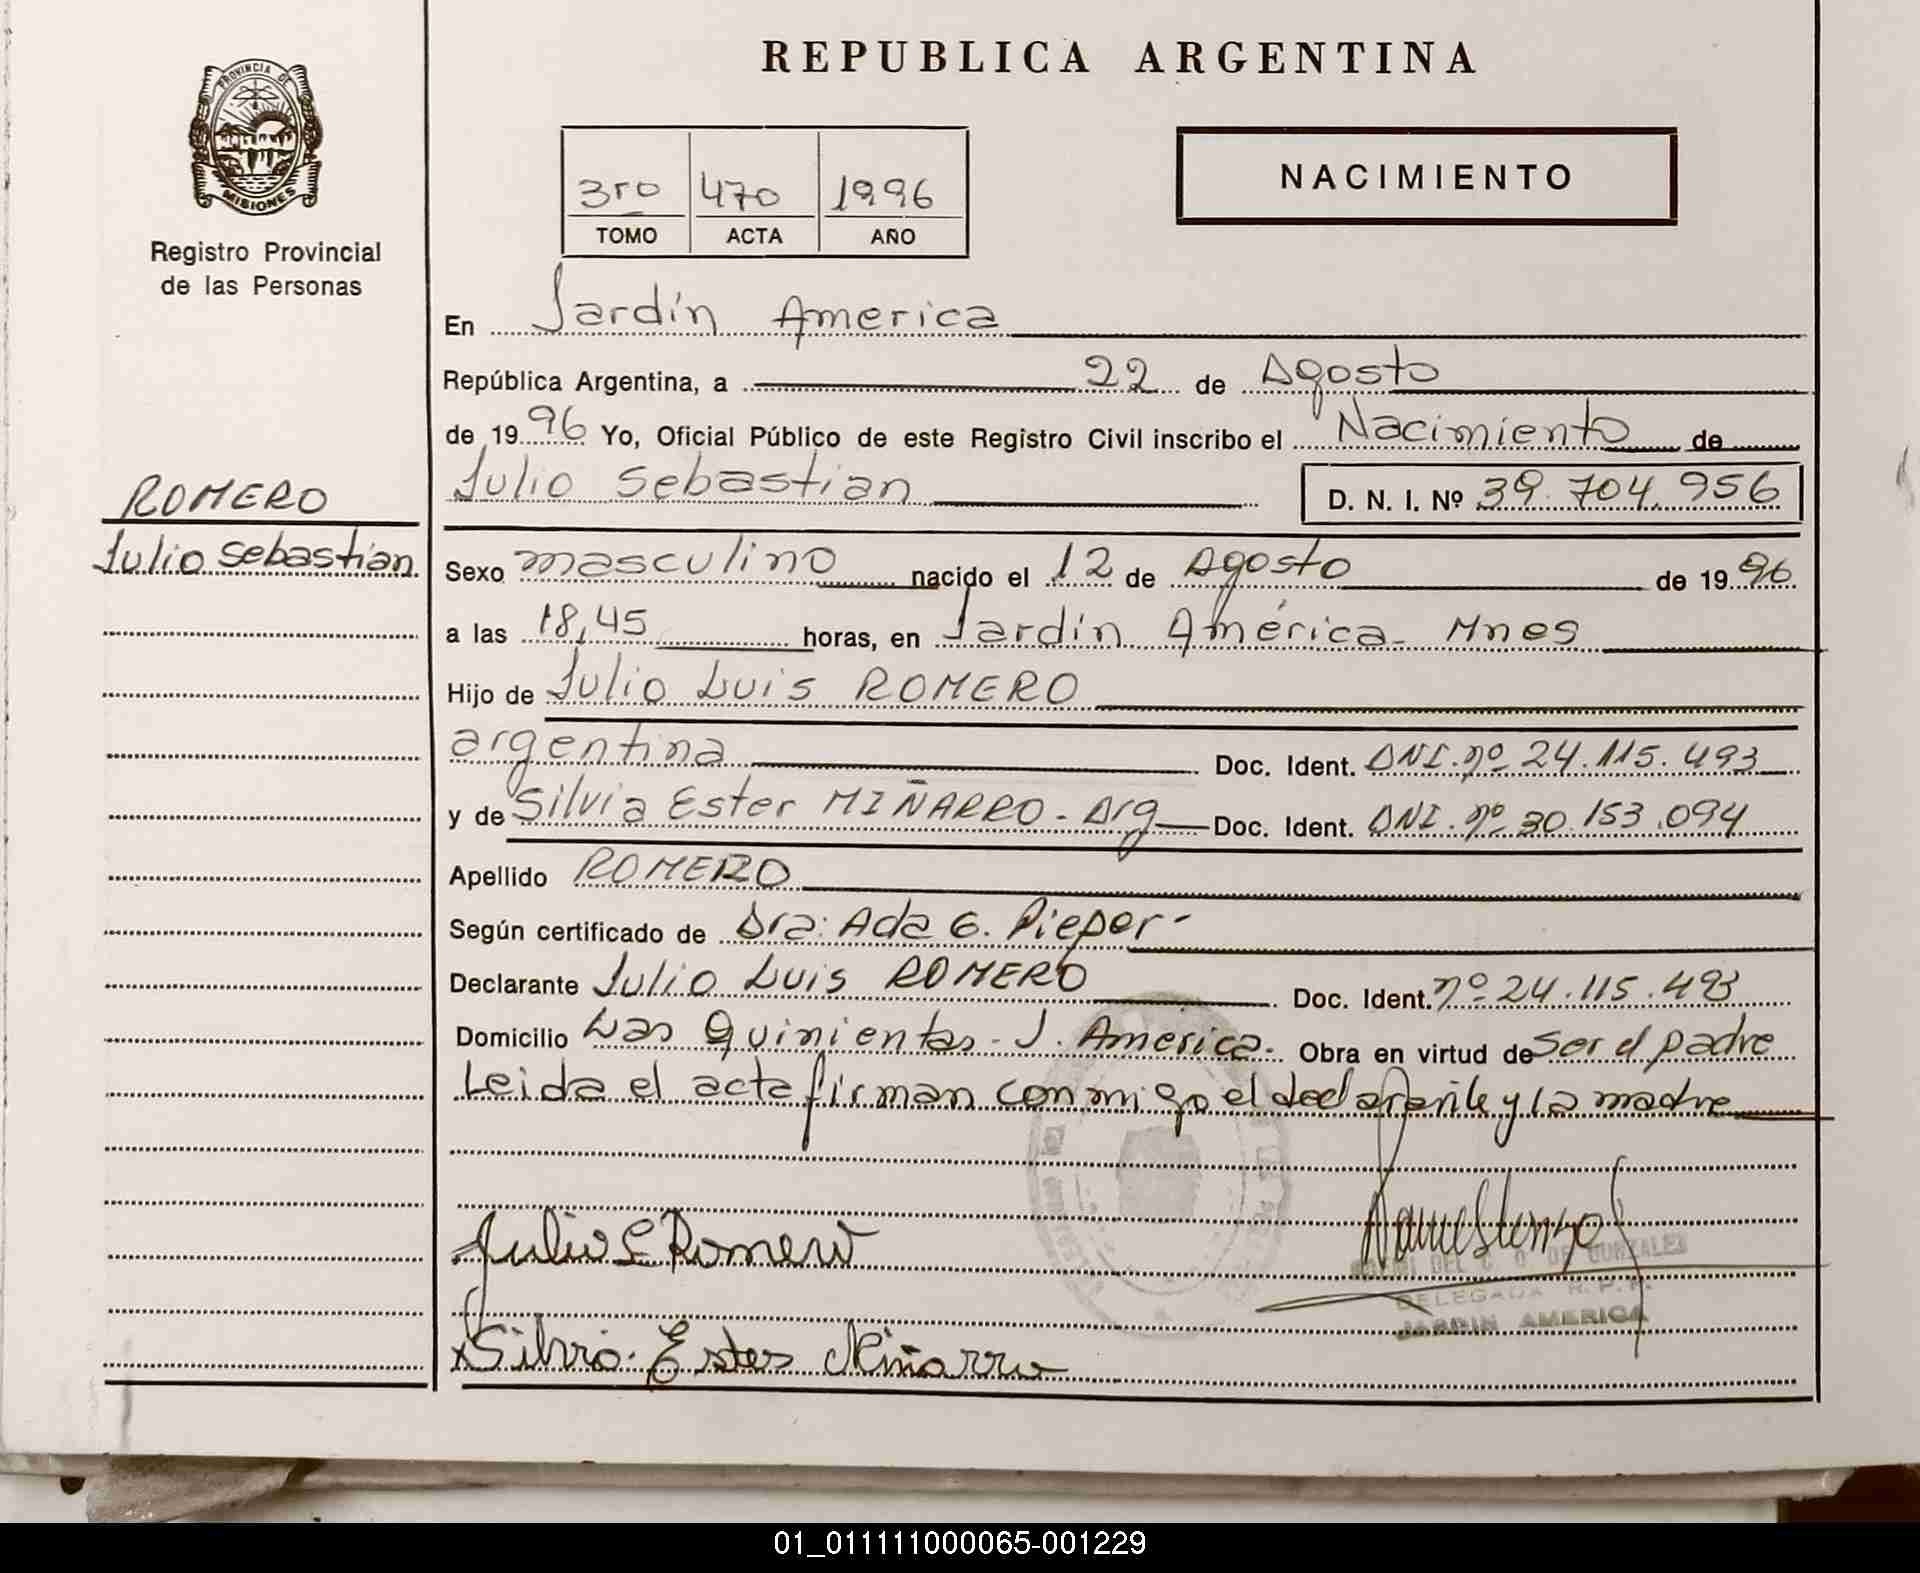 REPUBLICA ARGENTINA
PROVINCIA DE
MISIONES
Registro Provincial
de las Personas
3ro 470 1996
TOMO ACTA AÑO
NACIMIENTO
En Jardín America
República Argentina, a 22 de Agosto
de 19 96 Yo, Oficial Público de este Registro Civil inscribo el Nacimiento de
Julio Sebastian D. N. I. Nº 39.704.956
ROMERO
Julio Sebastian
Sexo masculino nacido el 12 de Agosto de 19 96
a las 18,45 horas, en Jardín América - Mnes
Hijo de Julio Luis ROMERO
argentina Doc. Ident. DNI. nº 24.115.493
y de Silvia Ester MIÑARRO - Arg Doc. Ident. DNI. nº 30.153.094
Apellido ROMERO
Según certificado de Dra: Ada G. Pieper -
Declarante Julio Luis ROMERO Doc. Ident. nº 24.115.493
Domicilio Las Quinientas - J. América - Obra en virtud de Ser el padre
Leida el acta firman conmigo el declarante y la madre
Julio L Romero
DE GONZALEZ
DELEGADA R.P.P.
JARDIN AMERICA
Silvia Ester Miñarro
01_011111000065-001229